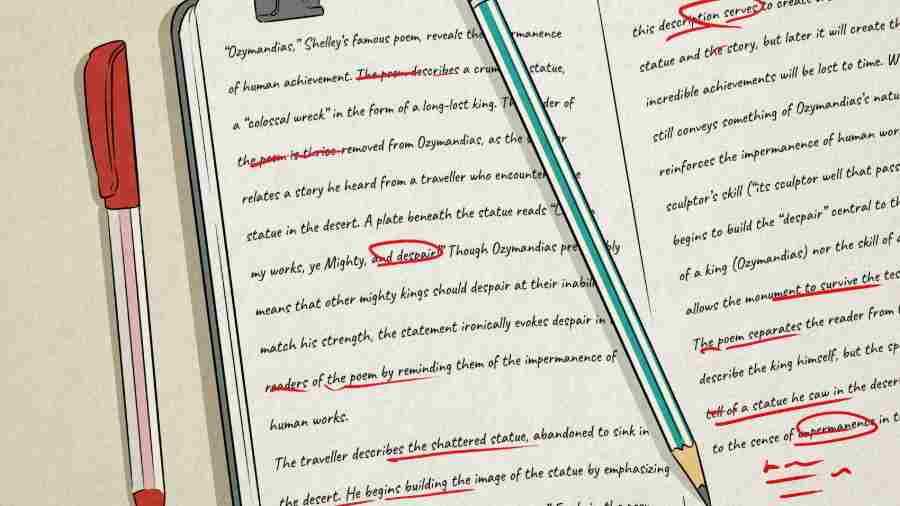 "Ozymandias," Shelley's famous poem, reveals the
of human achievement. The poem describes a statue,
a "colossal wreck" in the form of a long-lost king. of
the poem is thrice removed from Ozymandias, as the
relates a story he heard from a traveller who
statue in the desert. A plate beneath the statue reads
my works, ye Mighty, and despair!" Though Ozymandias
means that other mighty kings should despair at their
match his strength, the statement ironically evokes despair in
readers of the poem by reminding them of the impermanence of
human works.
The traveller describes the shattered statue, abandoned to sink in
the desert. He begins building the image of the statue by emphasizing
this description serves to
statue and the story, but later it will create
incredible achievements will be lost to time.
still conveys something of Ozymandias's
reinforces the impermanence of human
sculptor's skill ("its sculptor well that
begins to build the "despair" central to
of a king (Ozymandias) nor the skill of
allows the monument to survive the
The poem separates the reader from
describe the king himself, but the
tell of a statue he saw in the
to the sense of in